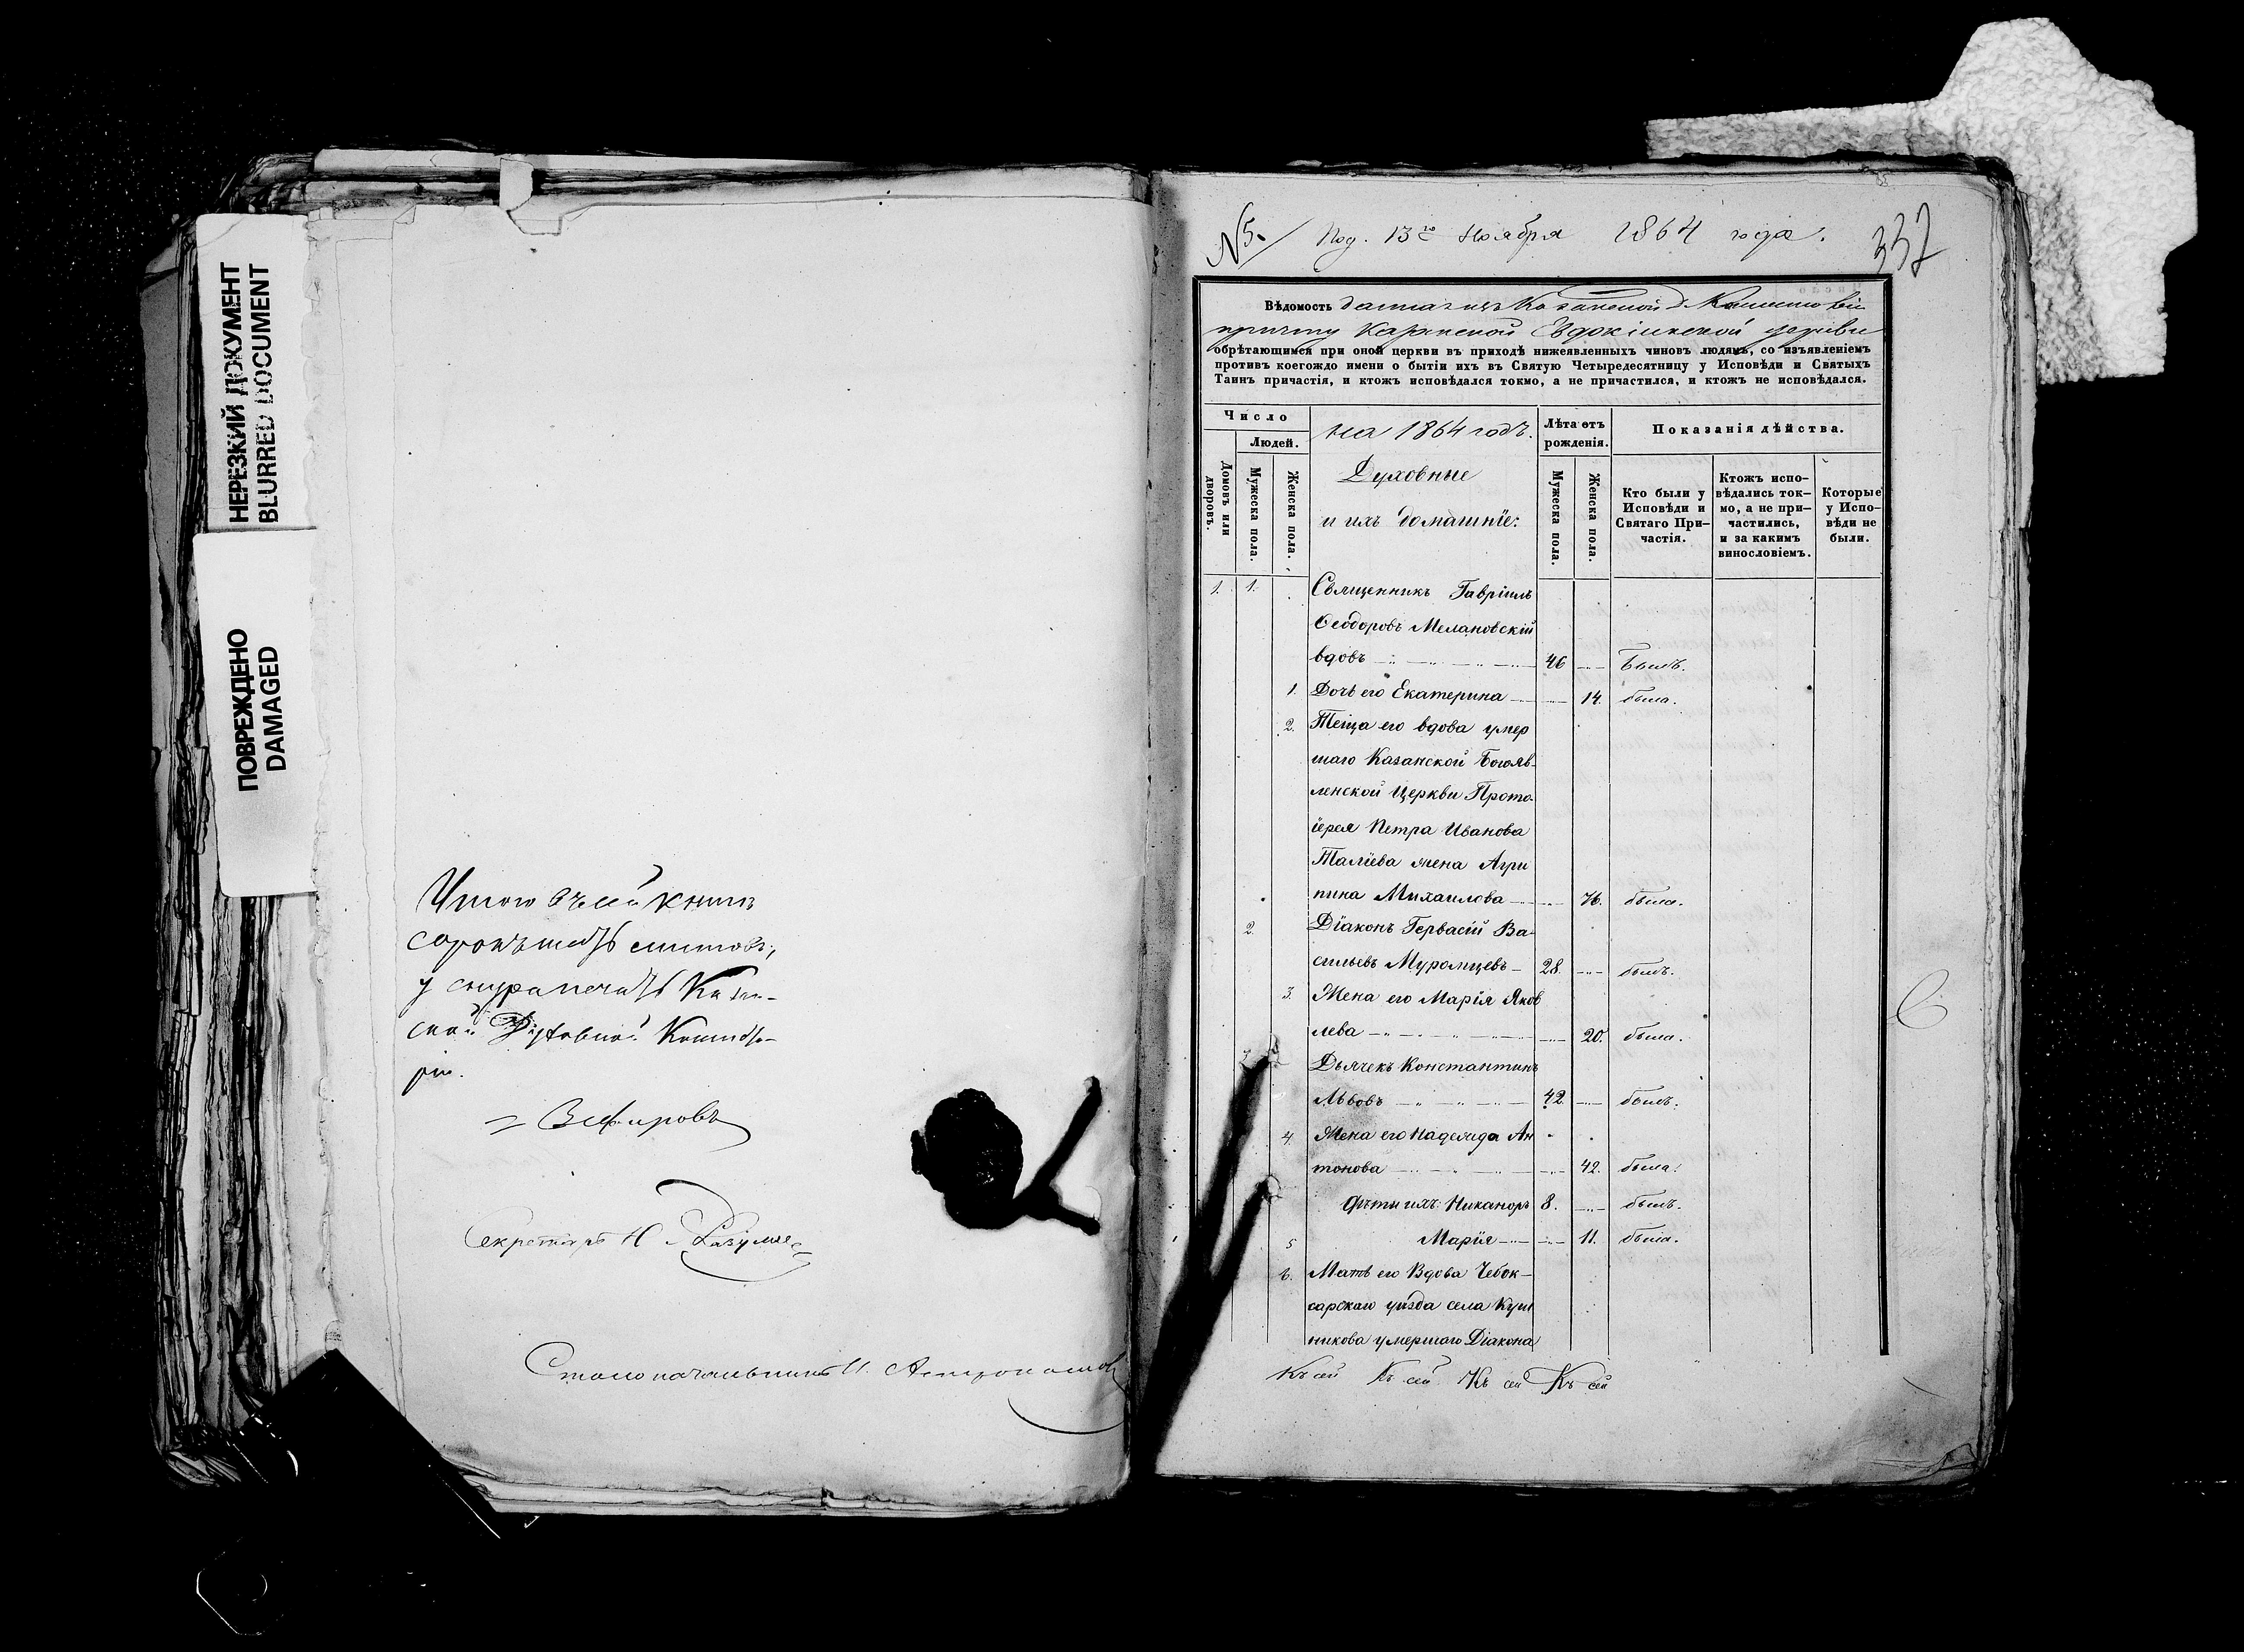 НЕРЕЗКИЙ ДОКУМЕНТ
BLURRED DOCUMENT
ПОВРЕЖДЕНО
DAMAGED
Итого въ сей книгѣ
сорокъ шесть листовъ,
у снура печать Казан-
ской Духовной Консисто-
ріи.
Секретарь Н.
Столоначальникъ И.
№ 5. Под. 13го Ноября 1864 года.
337
Вѣдомость данная изъ Казанской Д. Консисторіи
причту Казанской Евдокіинской церкви
обрѣтающимся при оной церкви въ приходѣ нижеявленныхъ чиновъ людямъ, со изъявленіемъ
противъ коегождо имени о бытіи ихъ въ Святую Четыредесятницу у Исповѣди и Святыхъ
Таинъ причастія, и ктожъ исповѣдался токмо, а не причастился, и ктожъ не исповѣдался.
Число
Людей.
Домовъ или дворовъ.
Мужеска пола.
Женска пола.
на 1864 годъ.
Духовные
и ихъ домашніе:
Лѣта отъ
рожденія.
Мужеска пола.
Женска пола.
Показанія дѣйства.
Кто были у
Исповѣди и
Святаго При-
частія.
Ктожъ испо-
вѣдались ток-
мо, а не при-
частились,
и за какимъ
винословіемъ.
Которые
у Испо-
вѣди не
были.
1. 1. Священникъ Гавріилъ
Ѳеодоровъ Мелановскій
вдовъ 46 былъ.
1. Дочь его Екатерина 14. была.
2. Теща его вдова умер
шаго Казанской Богояв-
ленской Церкви Прото-
іерея Петра Иванова
Таліева жена Агри
пина Михаилова 76. была.
2. Діаконъ Гервасій Ва-
сильевъ Муромцевъ 28. былъ.
3. Жена его Марія Яков
лева 20. была.
3. Дьячекъ Константинъ
Львовъ 42. былъ.
4. Жена его Надежда Ан
тонова 42. была.
Дѣти ихъ: Никаноръ 8. былъ.
5 Марія 11. была.
6. Мать его Вдова Чебок-
сарскаго уѣзда села Куш
никова умершаго Діакона
Къ сей Къ сей Къ сей Къ сей